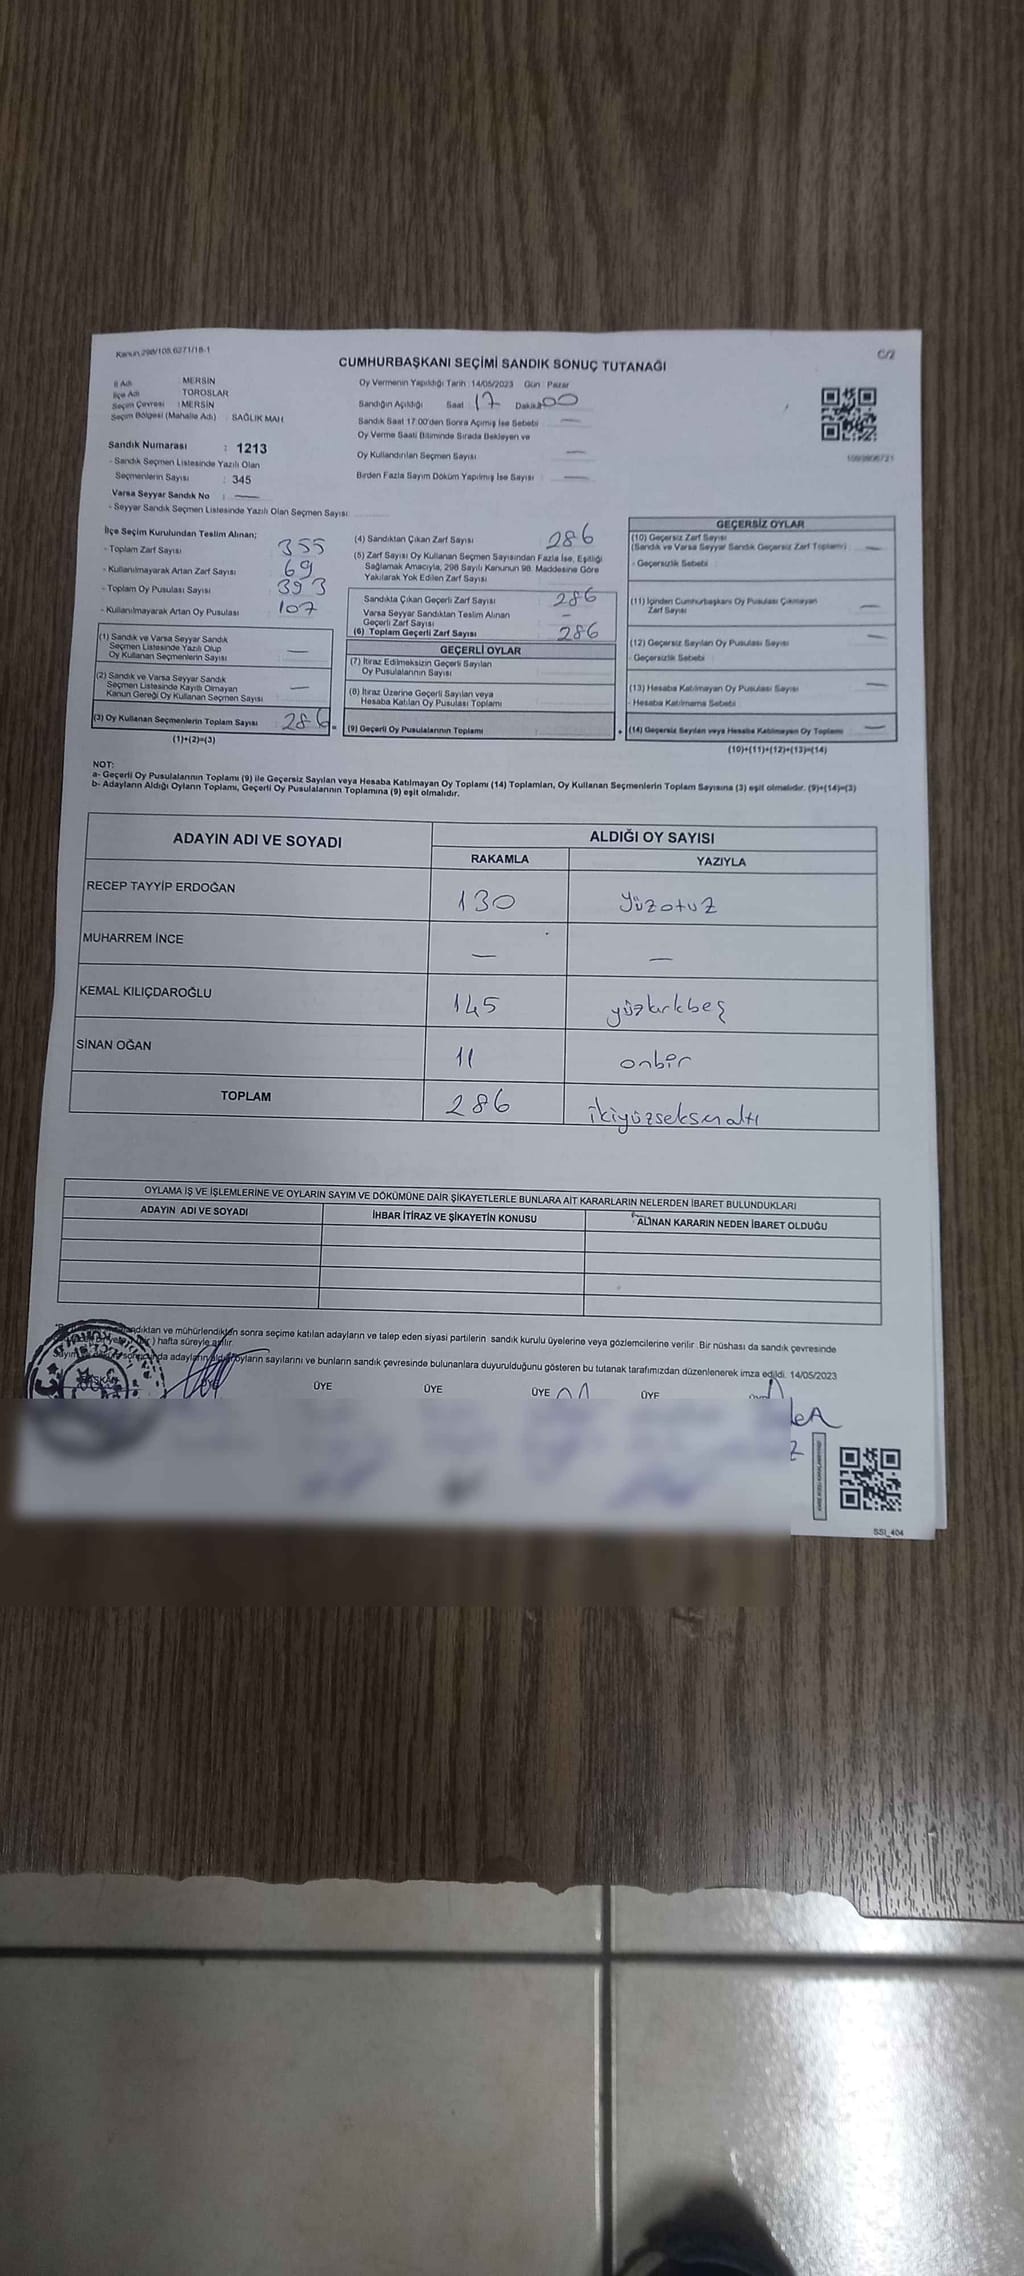 Kanun 298/105,6271/18-1
C/2
CUMHURBAŞKANI SEÇİMİ SANDIK SONUÇ TUTANAĞI
İl Adı MERSİN
İlçe Adı TOROSLAR
Seçim Çevresi : MERSİN
Seçim Bölgesi (Mahalle Adı) : SAĞLIK MAH
Oy Vermenin Yapıldığı Tarih : 14/05/2023 Gün : Pazar
Sandığın Açıldığı Saat 17 Dakika 00
Sandık Saat 17:00'den Sonra Açılmış İse Sebebi —
Oy Verme Saati Bitiminde Sırada Bekleyen ve
Oy Kullandırılan Seçmen Sayısı —
Birden Fazla Sayım Döküm Yapılmış İse Sayısı : —
Sandık Numarası : 1213
- Sandık Seçmen Listesinde Yazılı Olan
Seçmenlerin Sayısı : 345
Varsa Seyyar Sandık No : —
- Seyyar Sandık Seçmen Listesinde Yazılı Olan Seçmen Sayısı
İlçe Seçim Kurulundan Teslim Alınan;
- Toplam Zarf Sayısı 355
- Kullanılmayarak Artan Zarf Sayısı 69
- Toplam Oy Pusulası Sayısı 393
- Kullanılmayarak Artan Oy Pusulası 107
(1) Sandık ve Varsa Seyyar Sandık
Seçmen Listesinde Yazılı Olup
Oy Kullanan Seçmenlerin Sayısı —
(2) Sandık ve Varsa Seyyar Sandık
Seçmen Listesinde Kayıtlı Olmayan
Kanun Gereği Oy Kullanan Seçmen Sayısı —
(3) Oy Kullanan Seçmenlerin Toplam Sayısı 286 =
(1)+(2)=(3)
(4) Sandıktan Çıkan Zarf Sayısı 286
(5) Zarf Sayısı Oy Kullanan Seçmen Sayısından Fazla İse, Eşitliği
Sağlamak Amacıyla, 298 Sayılı Kanunun 98. Maddesine Göre
Yakılarak Yok Edilen Zarf Sayısı
Sandıkta Çıkan Geçerli Zarf Sayısı 286
Varsa Seyyar Sandıktan Teslim Alınan
Geçerli Zarf Sayısı —
(6) Toplam Geçerli Zarf Sayısı 286
GEÇERLİ OYLAR
(7) İtiraz Edilmeksizin Geçerli Sayılan
Oy Pusulalarının Sayısı
(8) İtiraz Üzerine Geçerli Sayılan veya
Hesaba Katılan Oy Pusulası Toplamı
(9) Geçerli Oy Pusulalarının Toplamı +
GEÇERSİZ OYLAR
(10) Geçersiz Zarf Sayısı
(Sandık ve Varsa Seyyar Sandık Geçersiz Zarf Toplamı) —
- Geçersizlik Sebebi :
(11) İçinden Cumhurbaşkanı Oy Pusulası Çıkmayan
Zarf Sayısı —
(12) Geçersiz Sayılan Oy Pusulası Sayısı —
- Geçersizlik Sebebi :
(13) Hesaba Katılmayan Oy Pusulası Sayısı —
- Hesaba Katılmama Sebebi
(14) Geçersiz Sayılan veya Hesaba Katılmayan Oy Toplamı —
(10)+(11)+(12)+(13)=(14)
NOT:
a- Geçerli Oy Pusulalarının Toplamı (9) ile Geçersiz Sayılan veya Hesaba Katılmayan Oy Toplamı (14) Toplamları, Oy Kullanan Seçmenlerin Toplam Sayısına (3) eşit olmalıdır. (9)+(14)=(3)
b- Adayların Aldığı Oyların Toplamı, Geçerli Oy Pusulalarının Toplamına (9) eşit olmalıdır.
ADAYIN ADI VE SOYADI ALDIĞI OY SAYISI
RAKAMLA YAZIYLA
RECEP TAYYİP ERDOĞAN 130 yüzotuz
MUHARREM İNCE — —
KEMAL KILIÇDAROĞLU 145 yüzkırkbeş
SİNAN OĞAN 11 onbir
TOPLAM 286 ikiyüzseksenaltı
OYLAMA İŞ VE İŞLEMLERİNE VE OYLARIN SAYIM VE DÖKÜMÜNE DAİR ŞİKAYETLERLE BUNLARA AİT KARARLARIN NELERDEN İBARET BULUNDUKLARI
ADAYIN ADI VE SOYADI İHBAR İTİRAZ VE ŞİKAYETİN KONUSU ALINAN KARARIN NEDEN İBARET OLDUĞU
ve mühürlendikten sonra seçime katılan adayların ve talep eden siyasi partilerin sandık kurulu üyelerine veya gözlemcilerine verilir. Bir nüshası da sandık çevresinde
hafta süreyle asılır.
adayların oyların sayılarını ve bunların sandık çevresinde bulunanlara duyurulduğunu gösteren bu tutanak tarafımızdan düzenlenerek imza edildi. 14/05/2023
ÜYE ÜYE ÜYE ÜYE
SSI_404